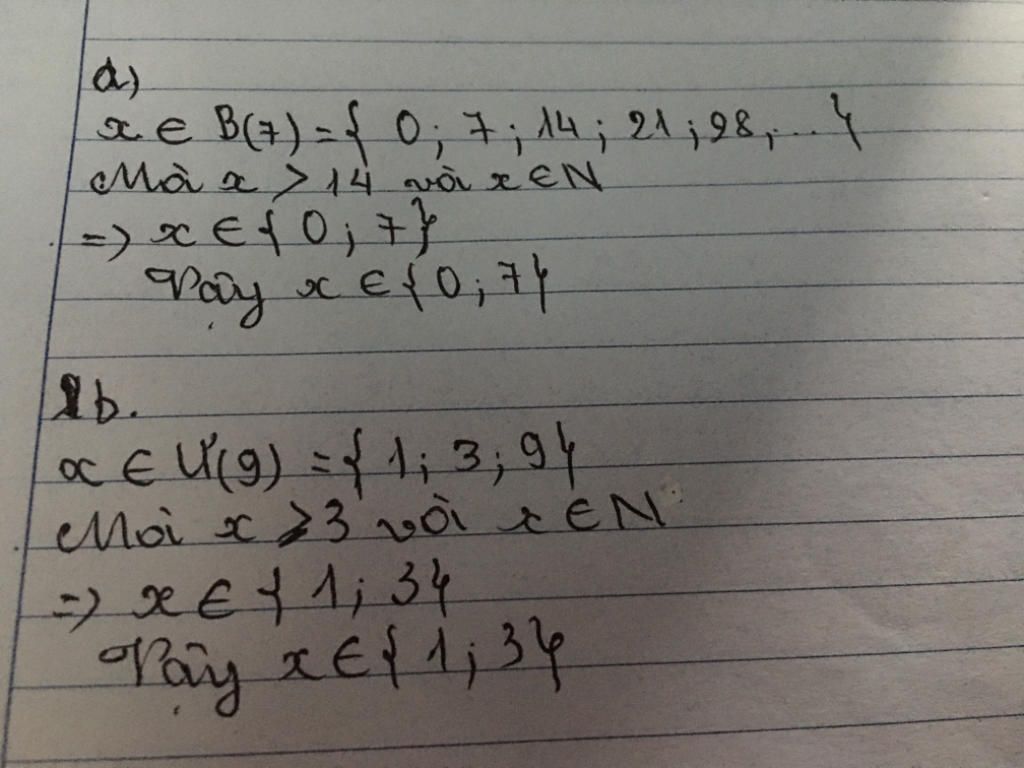 a)
x ∈ B(7) = { 0; 7; 14; 21; 28, ... }
Mà x > 14 với x ∈ N
=> x ∈ { 0; 7 }
Vậy x ∈ { 0; 7 }
b.
x ∈ Ư(9) = { 1; 3; 9 }
Mà x ≥ 3 với x ∈ N
=> x ∈ { 1; 3 }
Vậy x ∈ { 1; 3 }